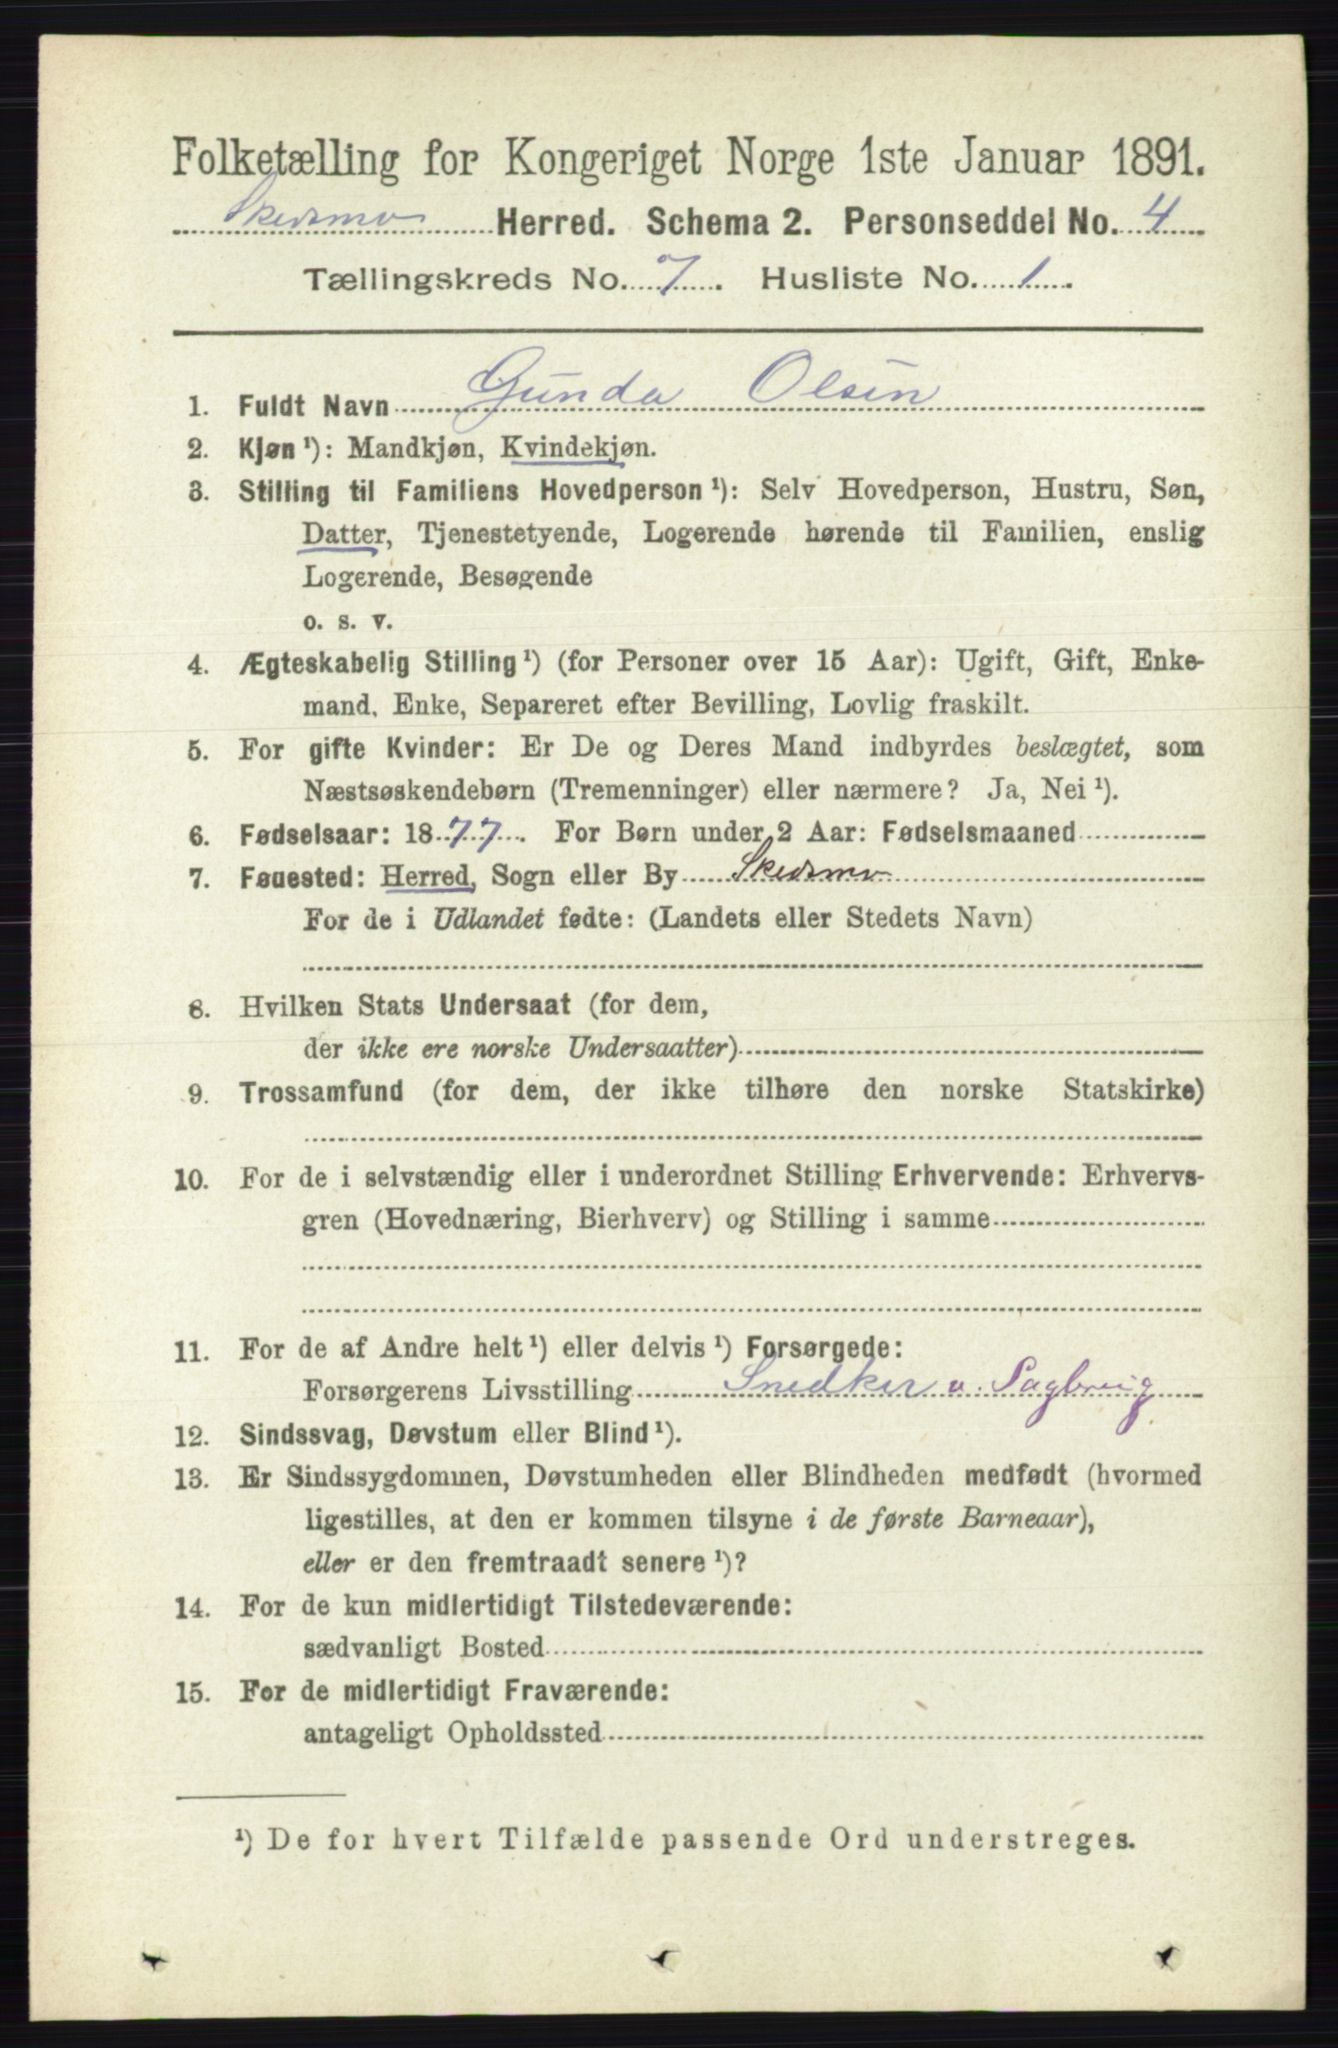 Folketælling for Kongeriget Norge 1ste Januar 1891.
Skedsmo Herred. Schema 2. Personseddel No. 4
Tællingskreds No. 7. Husliste No. 1.
1. Fuldt Navn Gunda Olsen
2. Kjøn ¹): Mandkjøn, Kvindekjøn.
3. Stilling til Familiens Hovedperson ¹): Selv Hovedperson, Hustru, Søn,
Datter, Tjenestetyende, Logerende hørende til Familien, enslig
Logerende, Besøgende
o. s. v.
4. Ægteskabelig Stilling ¹) (for Personer over 15 Aar): Ugift, Gift, Enke-
mand, Enke, Separeret efter Bevilling, Lovlig fraskilt.
5. For gifte Kvinder: Er De og Deres Mand indbyrdes beslægtet, som
Næstsøskendebørn (Tremenninger) eller nærmere? Ja, Nei ¹).
6. Fødselsaar: 1877. For Børn under 2 Aar: Fødselsmaaned
7. Føuested: Herred, Sogn eller By Skedsmo
For de i Udlandet fødte: (Landets eller Stedets Navn)
8. Hvilken Stats Undersaat (for dem,
der ikke ere norske Undersaatter)
9. Trossamfund (for dem, der ikke tilhøre den norske Statskirke)
10. For de i selvstændig eller i underordnet Stilling Erhvervende: Erhvervs-
gren (Hovednæring, Bierhverv) og Stilling i samme
11. For de af Andre helt ¹) eller delvis ¹) Forsørgede:
Forsørgerens Livsstilling Snedker v. Sagbrug
12. Sindssvag, Døvstum eller Blind ¹).
13. Er Sindssygdommen, Døvstumheden eller Blindheden medfødt (hvormed
ligestilles, at den er kommen tilsyne i de første Barneaar),
eller er den fremtraadt senere ¹)?
14. For de kun midlertidigt Tilstedeværende:
sædvanligt Bosted
15. For de midlertidigt Fraværende:
antageligt Opholdssted
¹) De for hvert Tilfælde passende Ord understreges.